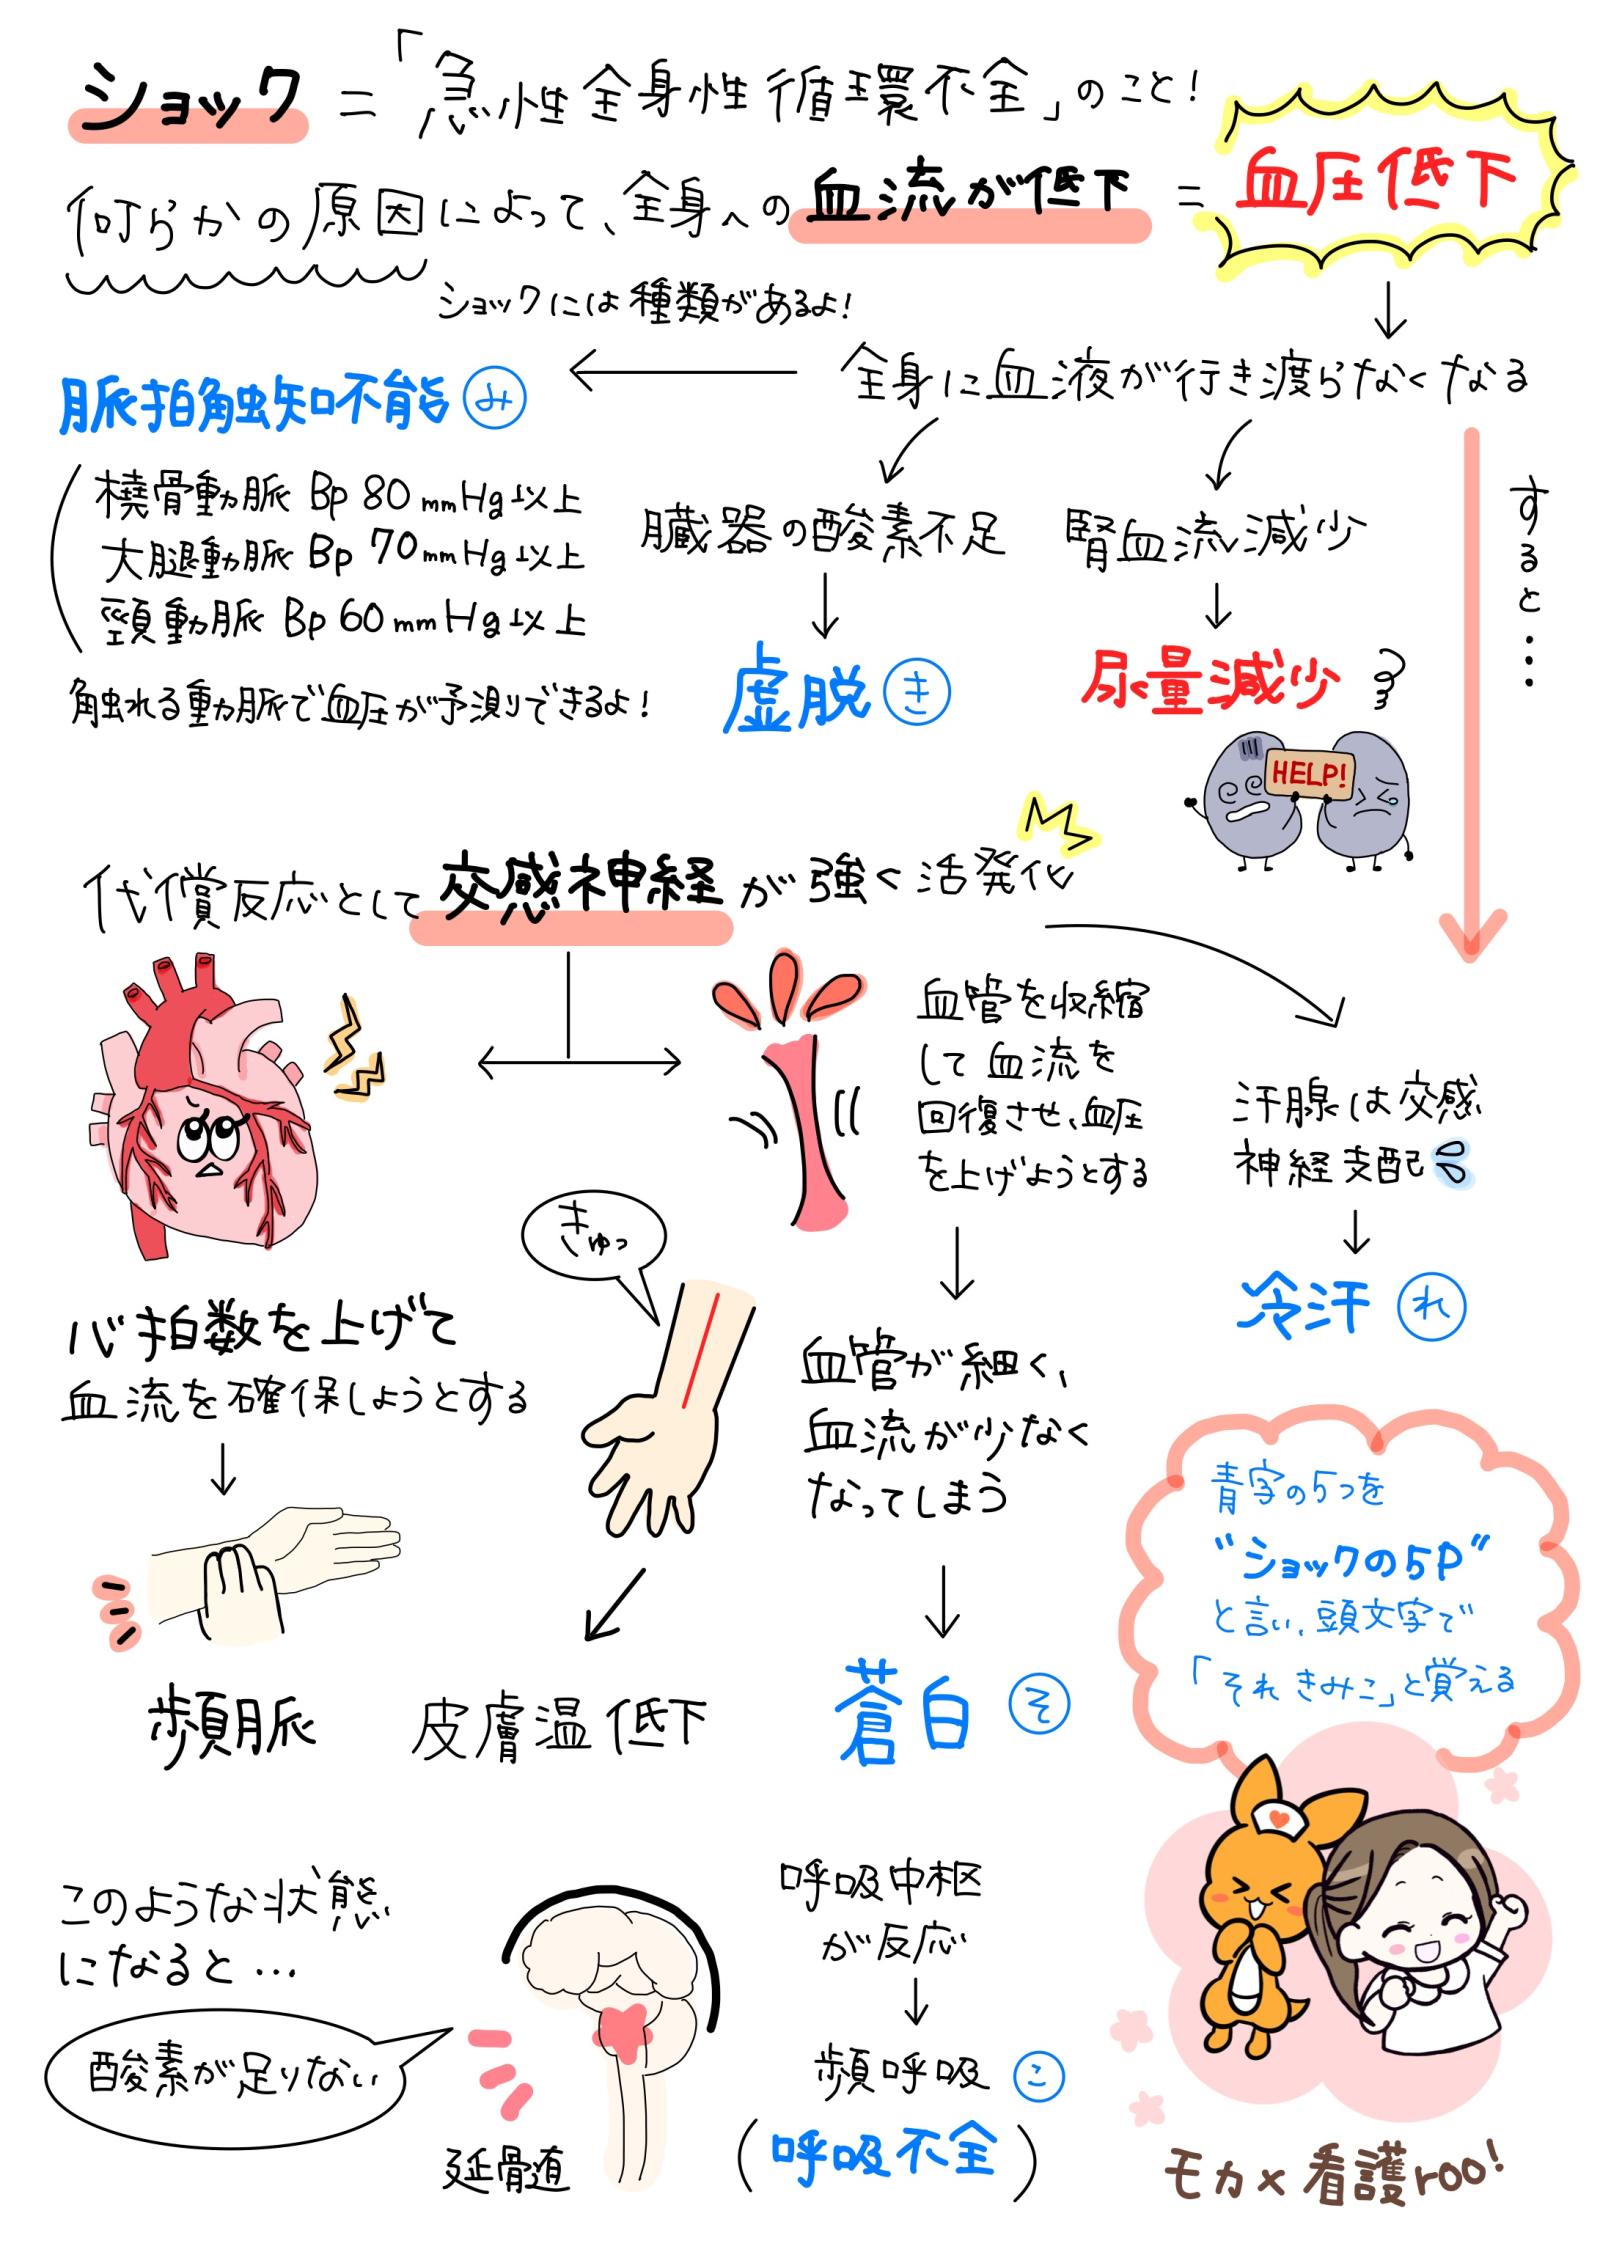 ショック=「急性全身性循環不全」のこと!
何らかの原因によって、全身への血流が低下=血圧低下
ショックには種類があるよ!
全身に血液が行き渡らなくなる
すると…
脈拍触知不能 み
橈骨動脈 Bp 80mmHg以上
大腿動脈 Bp 70mmHg以上
頸動脈 Bp 60mmHg以上
触れる動脈で血圧が予測りできるよ!
臓器の酸素不足
虚脱 き
腎血流減少
尿量減少
HELP!
代償反応として交感神経が強く活発化
血管を収縮
して血流を
回復させ、血圧
を上げようとする
汗腺は交感
神経支配
冷汗 れ
きゅっ
心拍数を上げて
血流を確保しようとする
頻脈
皮膚温低下
血管が細く、
血流が少なく
なってしまう
蒼白 そ
青字の5つを
"ショックの5P"
と言い、頭文字で
「それ きみこ」と覚える
このような状態
になると…
酸素が足りない
延髄
呼吸中枢
が反応
頻呼吸 こ
(呼吸不全)
モカ×看護roo!